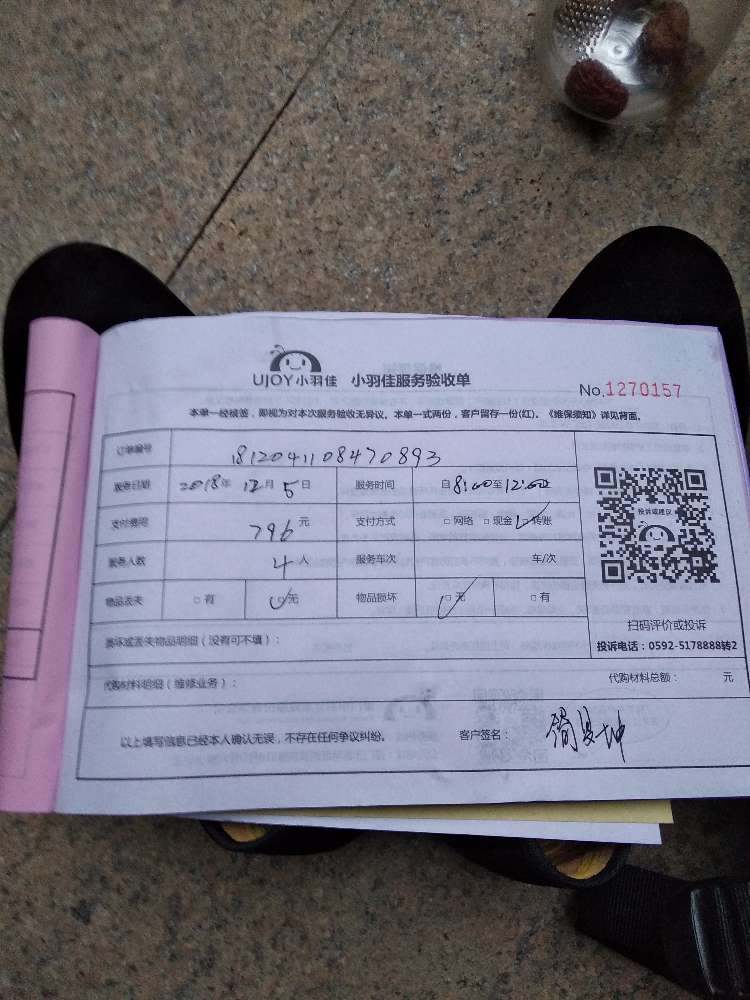 UJOY小羽佳 小羽佳服务验收单
No.1270157
本单一经核签，即视为对本次服务验收无异议。本单一式两份，客户留存一份(红)。《维保须知》详见背面。
订单编号 1812041108470893
服务日期 2018年 12月 5日 服务时间 自8:00至12:00
支付费用 796元 支付方式 □网络 □现金 □转账
服务人数 4人 服务车次 车/次
物品丢失 □有 □无 物品损坏 □无 □有
投诉或建议
扫码评价或投诉
投诉电话：0592-5178888转2
损坏或丢失物品明细（没有可不填）：
代购材料明细（维修业务）： 代购材料总额： 元
以上填写信息已经本人确认无误，不存在任何争议纠纷。 客户签名：